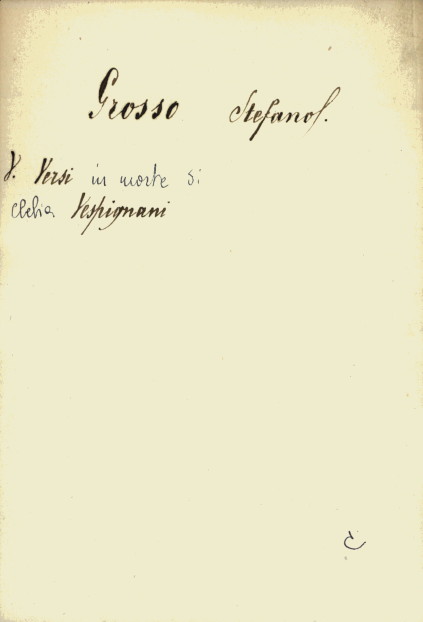 Grosso Stefano.
V. Versi in morte di
Clelia Vespignani